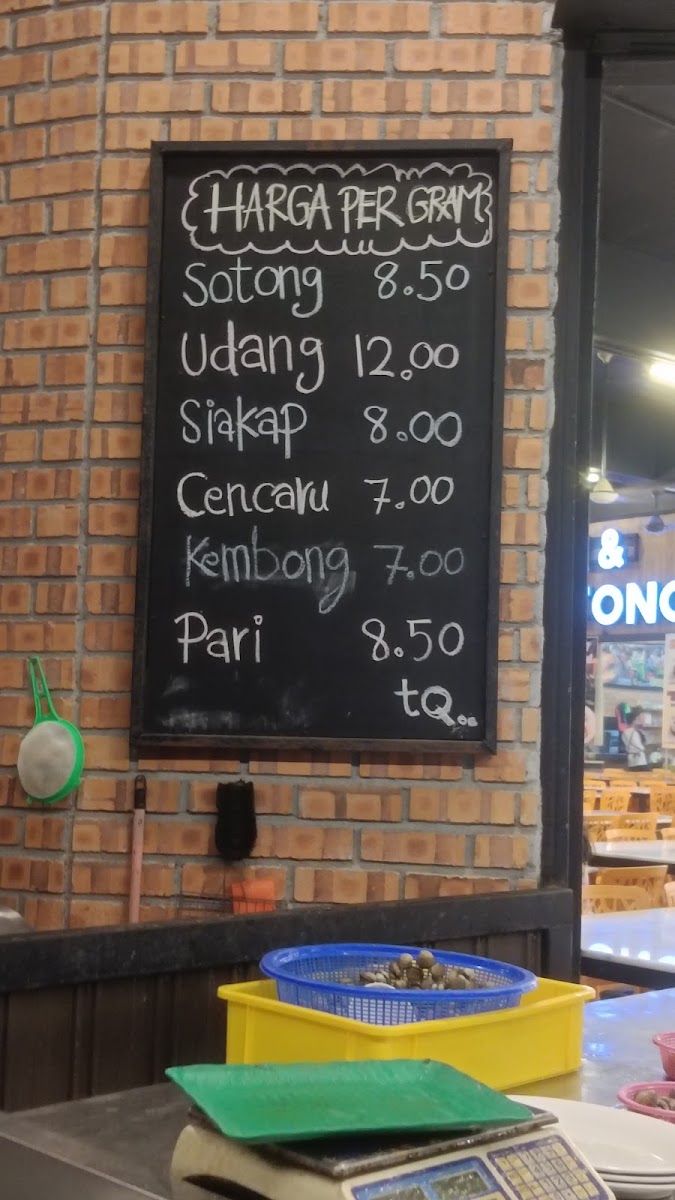 HARGA PER GRAM
Sotong 8.50
Udang 12.00
Siakap 8.00
Cencaru 7.00
Kembong 7.00
Pari 8.50
tQ..
&
TONG